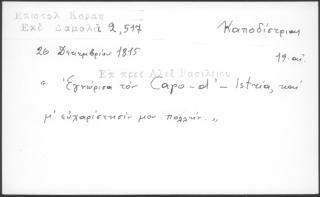 Επιστολ Κοραη Καποδίστριας
Εκδ Δαμαλά 2,517
20 Δεκεμβρίου 1815 19. αι.
Επ προς Αλεξ Βασιλειου
" Ἐγνώρισα τὸν Capo-d'-Istria, καὶ
μ' εὐχαρίστησίν μου πολλήν. "